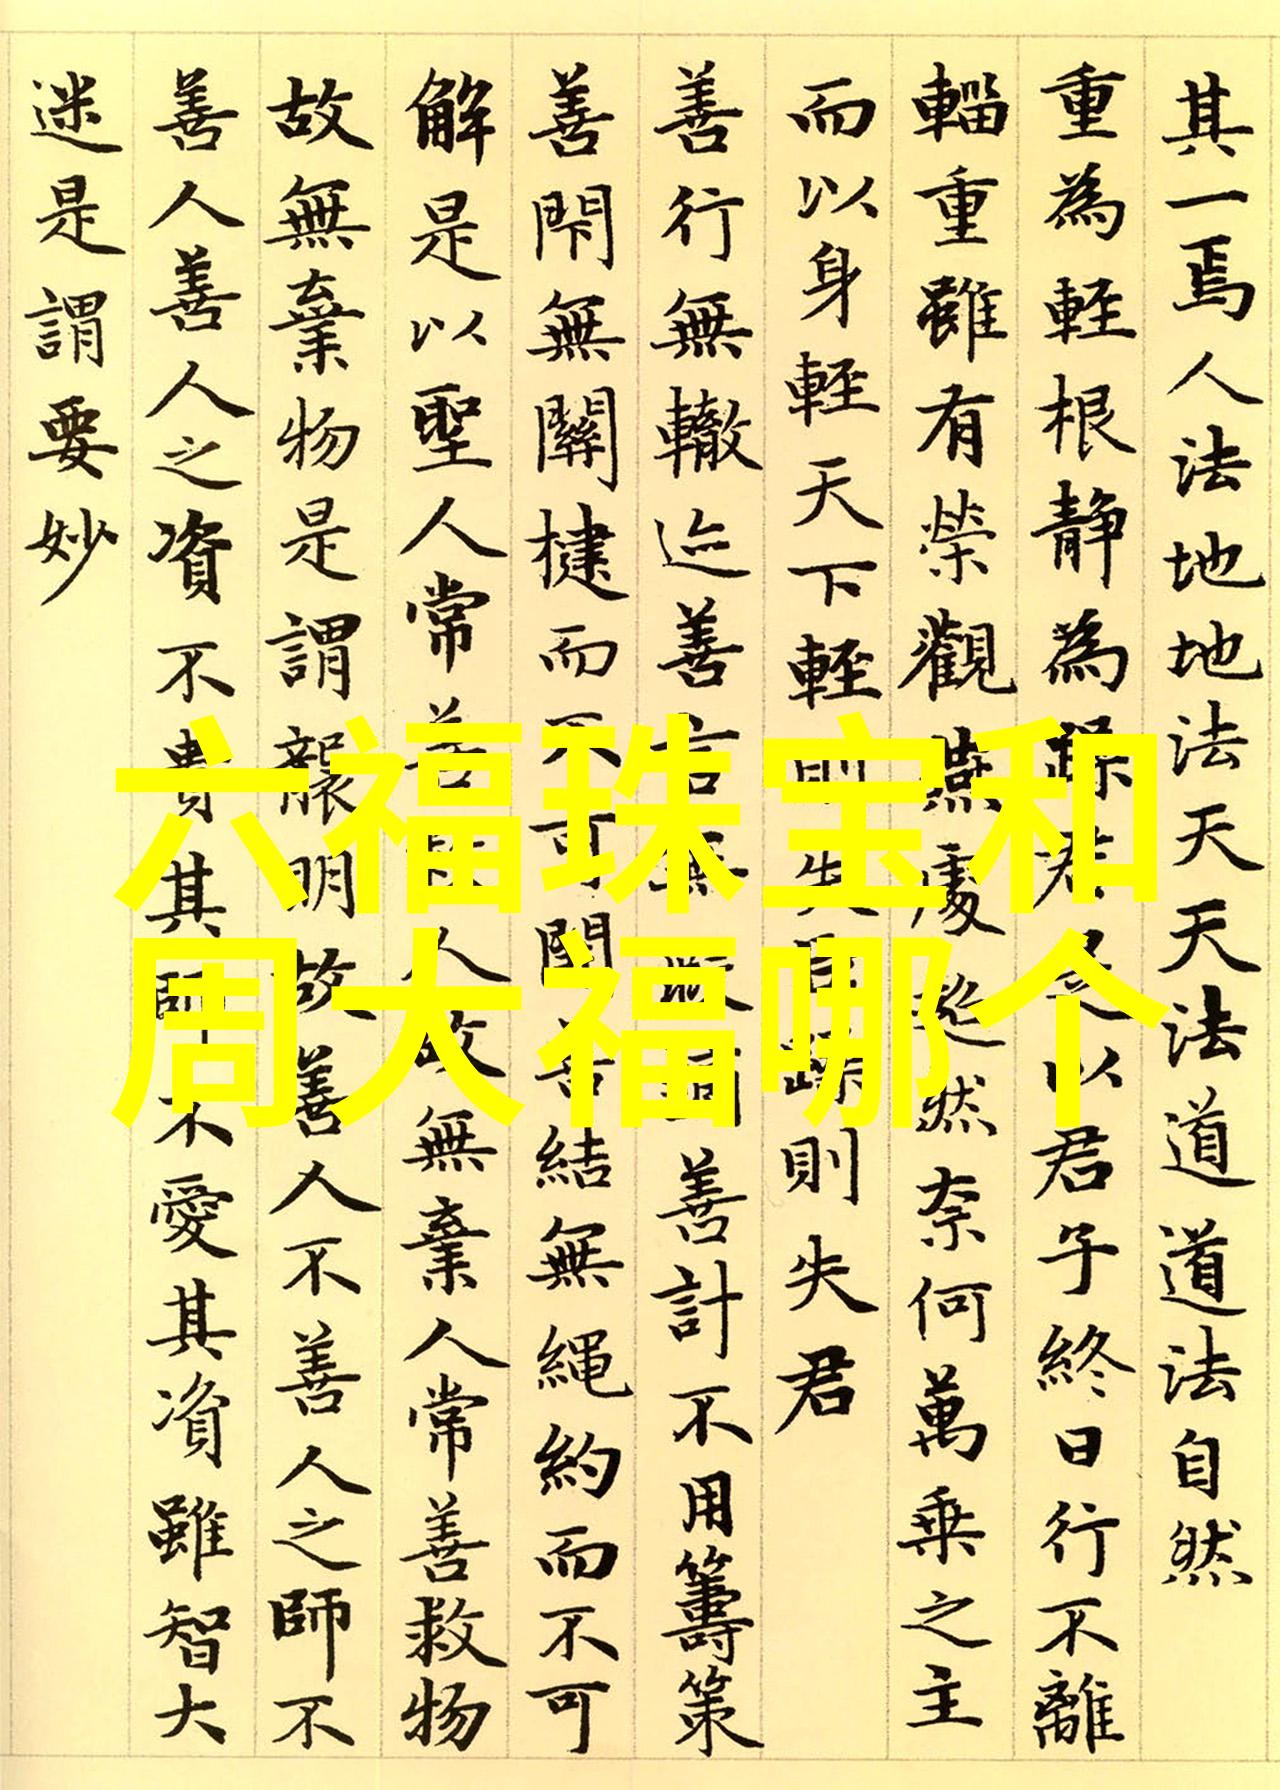 其一焉人法地地法天天法道道法自然
重為輕根靜為躁君是以君子終日行不離
輜重雖有榮觀燕處超然奈何萬乘之主
而以身輕天下輕則失臣躁則失君
善行無轍迹善言無瑕謫善計不用籌策
善閇無關楗而不可開善結無繩約而不可
解是以聖人常善救人故無棄人常善救物
故無棄物是謂襲明故善人不善人之師不
善人善人之資不貴其師不愛其資雖智大
迷是謂要妙
六福珠宝和
周大福哪个